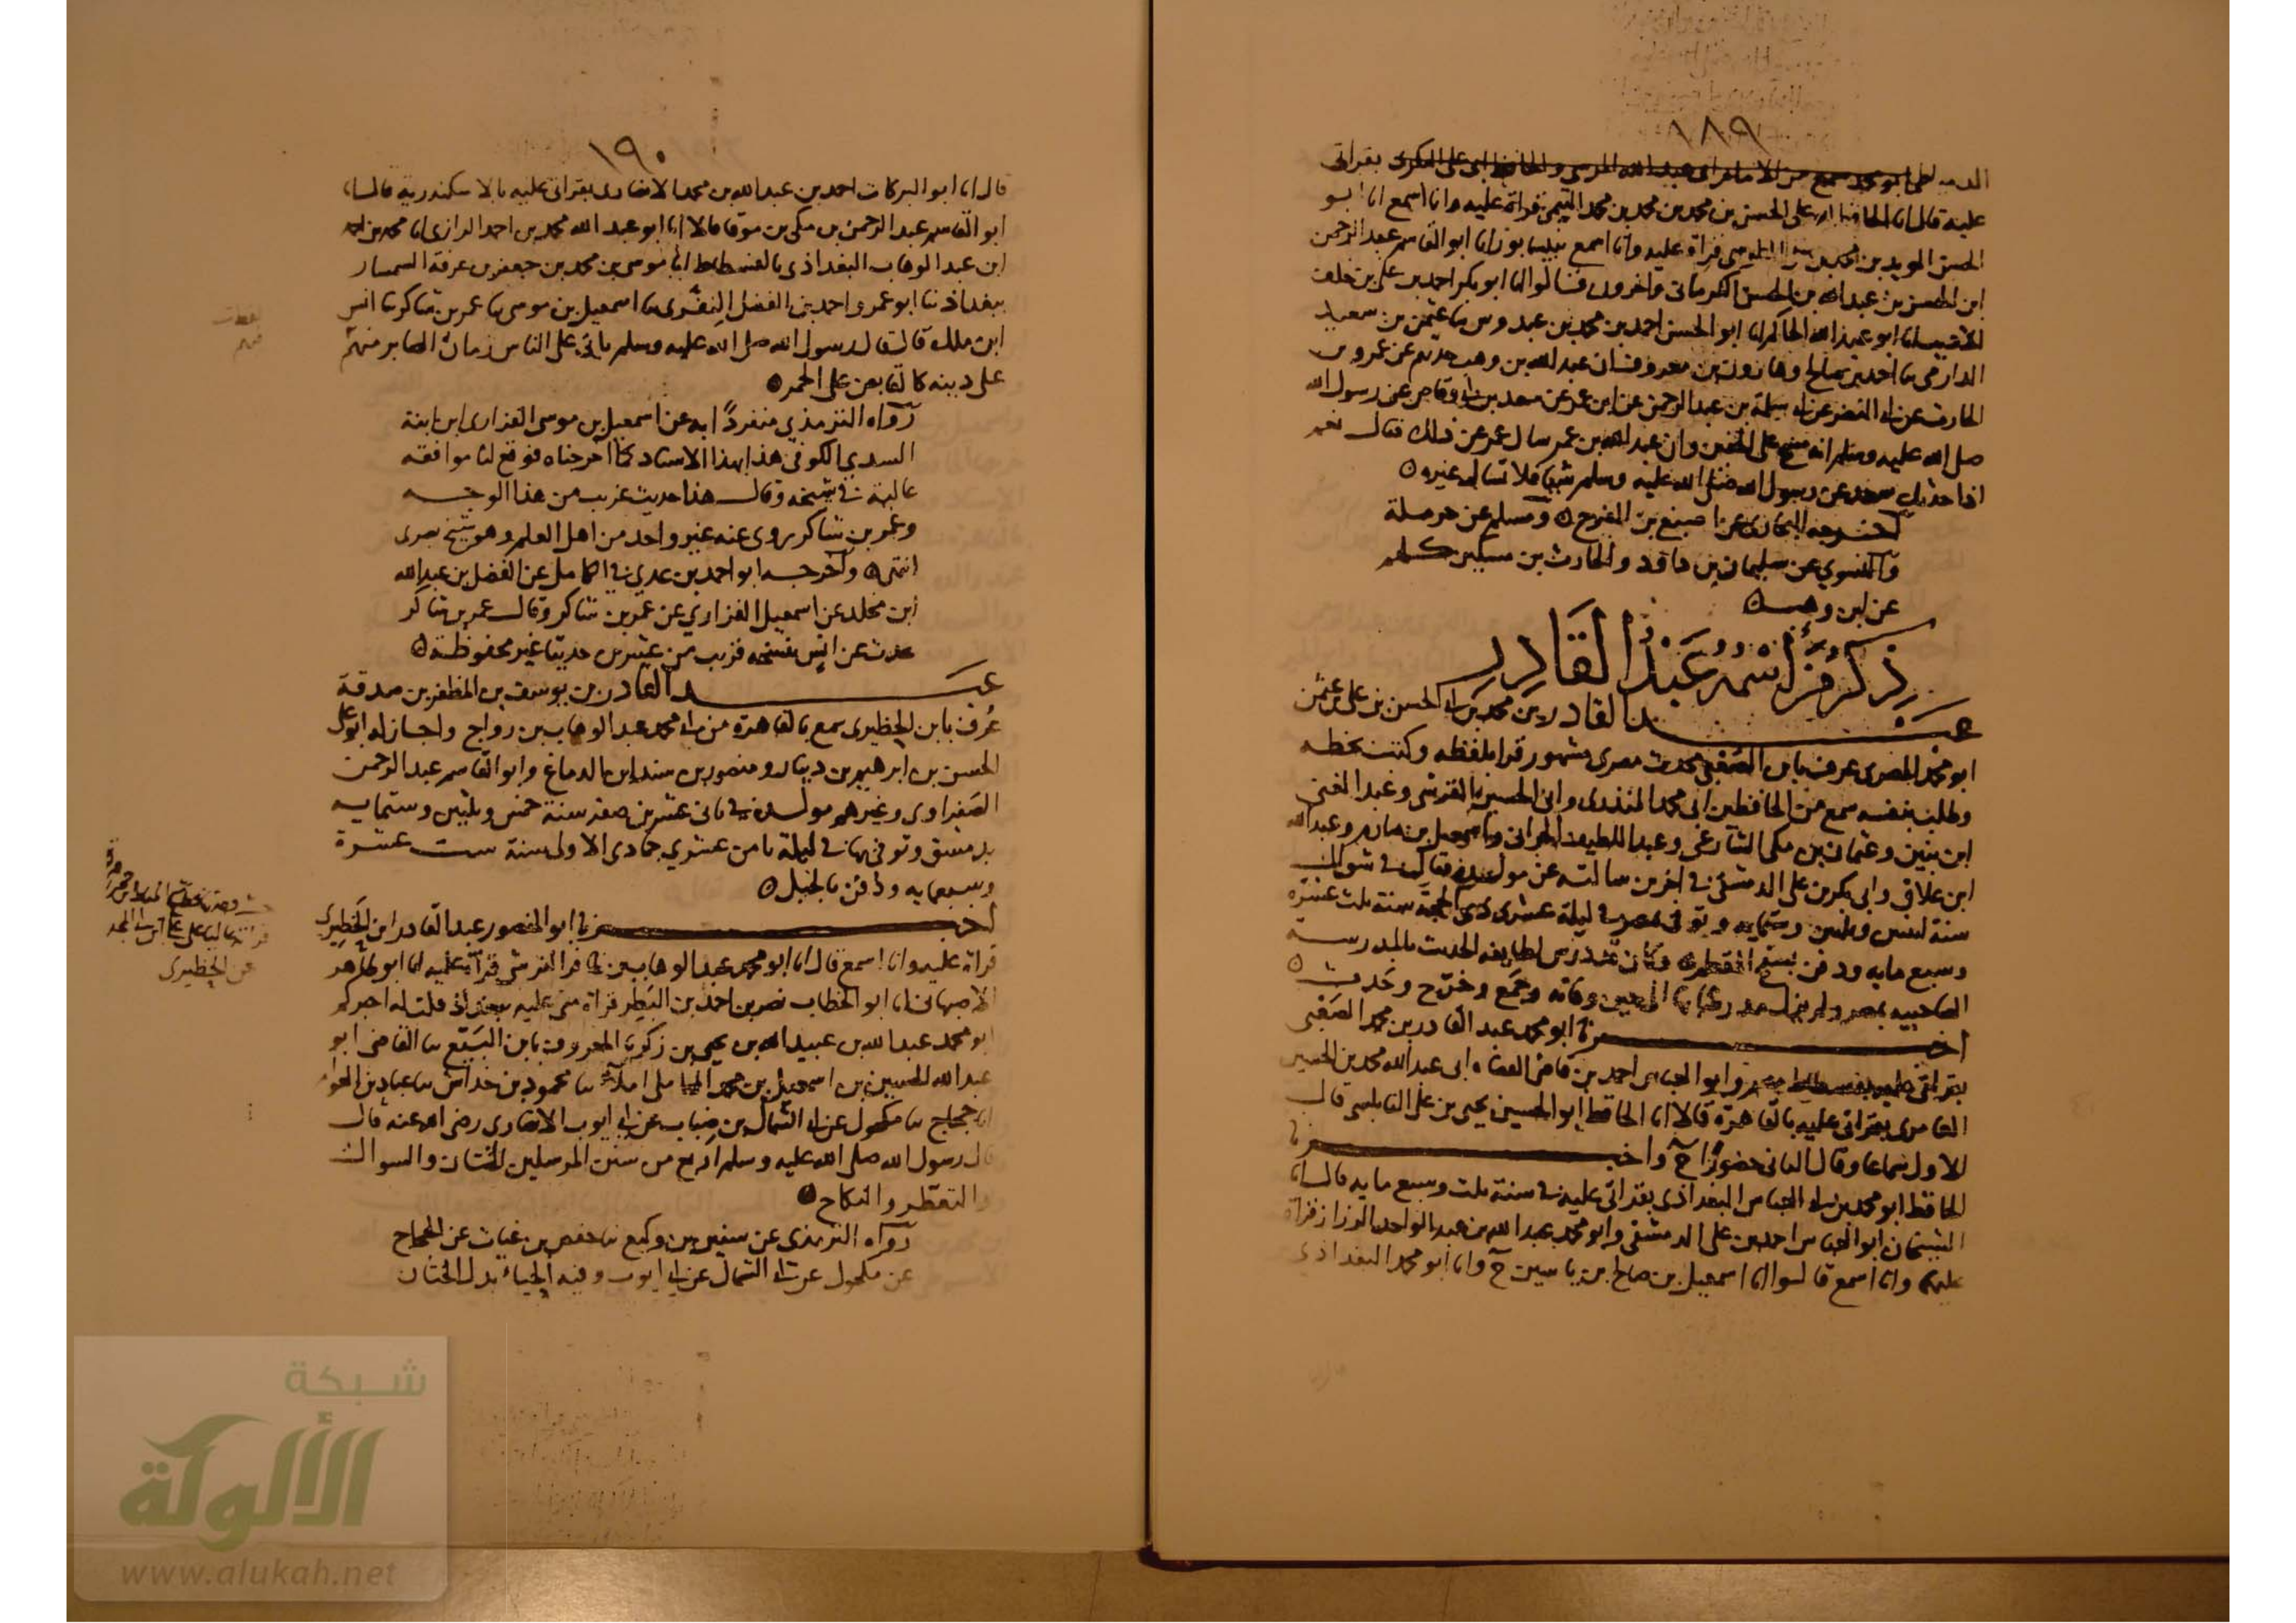 ١٨٩
الدمياطي ابو محمد سمع من الامام ابي عبد الله المرسي والحافظ ابي علي البكري بقراتي
عليه قال انا الحافظ ابو علي الحسن بن محمد بن محمد بن محمد التيمي قراة عليه وانا اسمع انا ابو
الحسن المويد بن محمد بن علي الطوسي قراة عليه وانا اسمع بنيسابور انا ابو القاسم عبد الرحمن
ابن الحسن بن عبد الله بن الحسن الكرماني واخرون قالوا انا ابو بكر احمد بن علي بن خلف
انا ابو عبد الله الحاكم انا ابو الحسن احمد بن محمد بن عبدوس نا عثمن بن سعيد
الدارمي نا احمد بن صالح وهارون بن معروف ان عبد الله بن وهب حدثهم عن عمرو بن
الحارث عن ابي النضر عن ابي سلمة بن عبد الرحمن عن ابن عمر عن سعد بن ابي وقاص عن رسول الله
صلى الله عليه وسلم انه مسح على الخفين وان عبد الله بن عمر سال عمر عن ذلك فقال نعم
اذا حدثك سعد عن رسول الله صلى الله عليه وسلم شيا فلا تسال غيره
اخرجه البخاري عن اصبغ بن الفرج ومسلم عن حرملة
والنسوي عن سليمان بن داود والحارث بن مسكين كلهم
عن ابن وهب
ذكر من اسمه عبد القادر
عبد القادر بن محمد بن ابي الحسن بن علي بن عثمن
ابو محمد المصري عرف بابن الصعبي محدث مصري مشهور قرا بلفظه وكتب بخطه
وطلب بنفسه سمع من الحافظين ابي محمد المنذري وابي الحسين القرشي وعبد الغني
ابن بنين وعثمان بن مكي الشارعي وعبد اللطيف الحراني واسمعيل بن صارم وعبد الله
ابن علاق وابي بكر بن علي الدمشقي في اخرين سالته عن مولده فقال في شوال
سنة وستمايه وتوفي بمصر في ليلة عشري ذي الحجة سنة ثلث عشرة
وسبع مايه ودفن بسفح المقطم وكان تدريس لطايفه الحديث بالمدرسة
الصاحبيه بمصر ولم يزل الى حين وفاته وجمع وخرج وحدث
اخبرنا ابو محمد عبد القادر بن محمد الصعبي
بقراتي عليه بفسطاط مصر وابو العباس احمد بن قاضي القضاه ابي عبد الله محمد بن الحسين
بقراتي عليه بالقاهرة قالا انا الحافظ ابو الحسين يحيى بن علي النابلسي قال
الاول سماعا وقال الثاني حضورا ح واخبرنا
الحافظ ابو محمد بن ابي العباس البغدادي بقراتي عليه في سنة ثلث وسبع مايه قال انا
الشيخان ابو العباس احمد بن علي الدمشقي وابو محمد عبد الله بن عبد الواحد الرزاز قراة
عليهما وانا اسمع قالوا انا اسمعيل بن صالح بن ياسين ح وانا ابو محمد البغدادي
١٩٠
قال انا ابو البركات احمد بن عبد الله بن محمد الانصاري بقراتي عليه بالاسكندرية قال انا
ابو القاسم عبد الرحمن بن مكي بن موقا قالا انا ابو عبد الله محمد بن احمد الرازي انا محمد بن احمد
ابن عبد الوهاب البغدادي بالفسطاط انا موسى بن محمد بن جعفر بن عرفة السمسار
ببغداد نا ابو عمرو احمد بن الفضل النفري نا اسمعيل بن موسى نا عمر بن شاكر نا انس
ابن ملك قال قال رسول الله صلى الله عليه وسلم ياتي على الناس زمان الصابر منهم
على دينه كالقابض على الجمر
رواه الترمذي منفردا به عن اسمعيل بن موسى الفزاري ابن ابنة
السدي الكوفي هذا بهذا الاسناد كما اخرجناه فوقع لنا موافقه
عالية في شيخه وقال هذا حديث غريب من هذا الوجه
وعمر بن شاكر روى عنه غير واحد من اهل العلم وهو شيخ بصري
انتهى واخرجه ابو احمد بن عدي في الكامل عن الفضل بن عبد الله
ابن مخلد عن اسمعيل الفزاري عن عمر بن شاكر وقال عمر بن شاكر
يحدث عن انس بنسخه قريب من عشرين حديثا غير محفوظة
عبد القادر بن يوسف بن المظفر بن صدقة
عرف بابن الخطيري سمع بالقاهرة من ابي محمد عبد الوهاب بن رواج واجاز له ابو علي
الحسن بن ابرهيم بن دينار ومنصور بن سند ابن الدماغ وابو القاسم عبد الرحمن
الصفراوي وغيرهم مولده في ثاني عشر بن صفر سنة خمس وثلثين وستمايه
بدمشق وتوفي بها في ليلة ثامن عشري جمادى الاولى سنة ست عشرة
وسبعمايه ودفن بالجبل
اخبرنا ابو المنصور عبد القادر ابن الخطيري
قراة عليه وانا اسمع قال انا ابو محمد عبد الوهاب بن ظافر القرشي قراة عليه انا ابو طاهر
الاصبهاني انا ابو الخطاب نصر بن احمد بن البطر قراة مني عليه ببغداذ قلت له اخبركم
ابو محمد عبد الله بن عبيد الله بن يحيى بن زكريا المعروف بابن البيع نا القاضي ابو
عبد الله الحسين بن اسمعيل بن محمد المحاملي املاء نا محمود بن خداش نا عباد بن العوام
انا حجاج نا مكحول عن ابي الشمال بن ضباب عن ابي ايوب الانصاري رضي الله عنه قال
قال رسول الله صلى الله عليه وسلم اربع من سنن المرسلين الختان والسواك
والتعطر والنكاح
رواه الترمذي عن سفين بن وكيع نا حفص بن غياث عن الحجاج
عن مكحول عن ابي الشمال عن ابي ايوب وفيه الحياء بدل الختان
عن الخطيري
شبكة
الألوكة
www.alukah.net